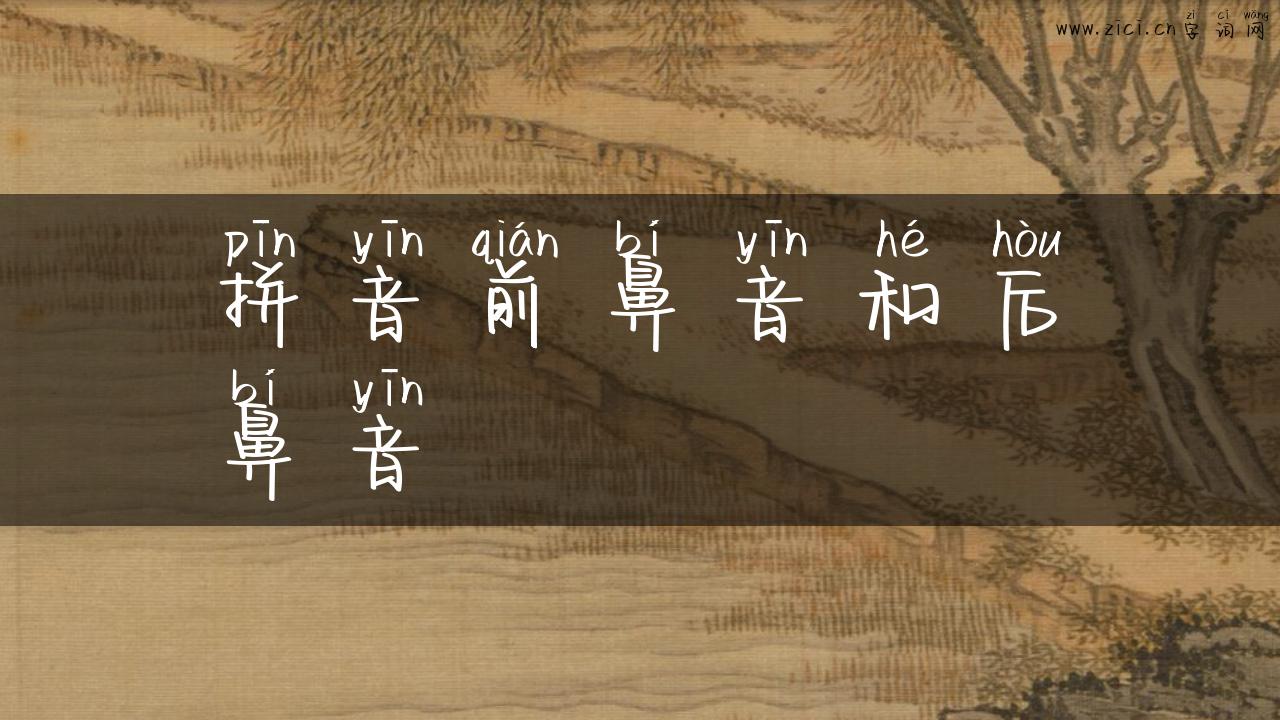 zì cí wǎng
www.zici.cn字词网
pīn yīn qián bí yīn hé hòu
拼音前鼻音和后
bí yīn
鼻音